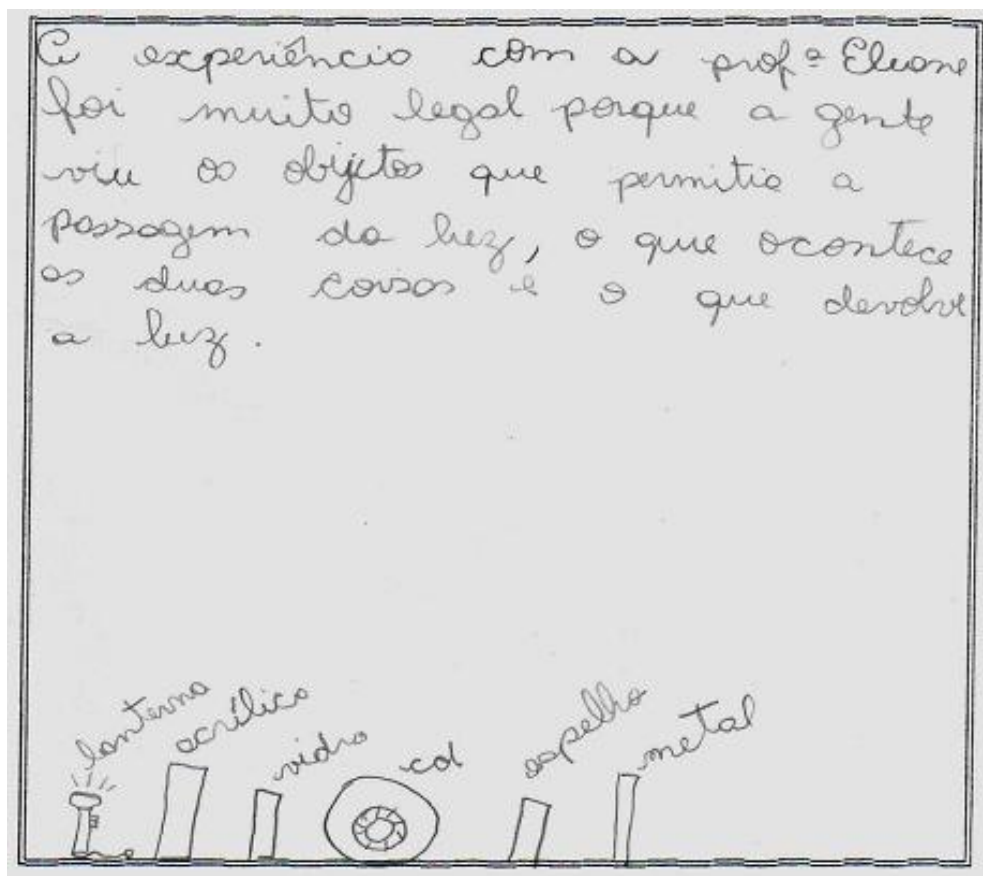 A experiência com a profª Eliane
foi muito legal porque a gente
viu os objetos que permitia a
passagem da luz, o que acontece
as duas coisas e o que devolve
a luz.
lanterna
acrílico
vidro
cd
espelho
metal